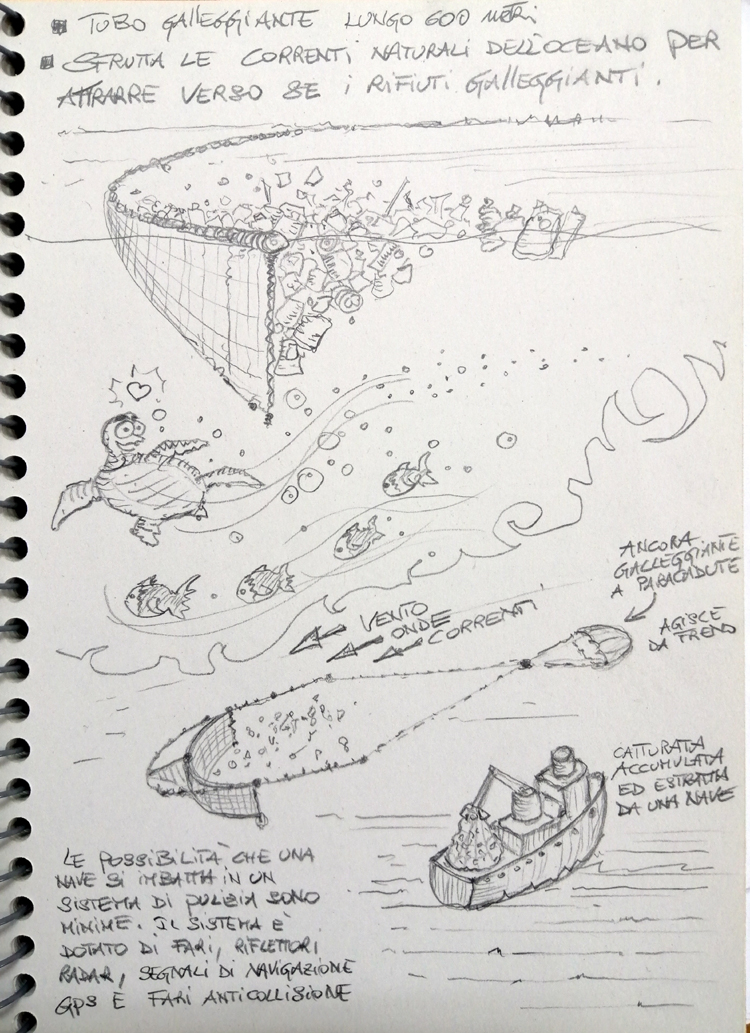 TUBO GALLEGGIANTE LUNGO 600 METRI
SFRUTTA LE CORRENTI NATURALI DELL'OCEANO PER
ATTRARRE VERSO SE I RIFIUTI GALLEGGIANTI.
ANCORA
GALLEGGIANTE
A PARACADUTE
AGISCE
DA FRENO
VENTO
ONDE
CORRENTI
CATTURATA
ACCUMULATA
ED ESTRATTA
DA UNA NAVE
LE POSSIBILITÀ CHE UNA
NAVE SI IMBATTA IN UN
SISTEMA DI PULIZIA SONO
MINIME. IL SISTEMA È
DOTATO DI FARI, RIFLETTORI
RADAR, SEGNALI DI NAVIGAZIONE
GPS E FARI ANTICOLLISIONE